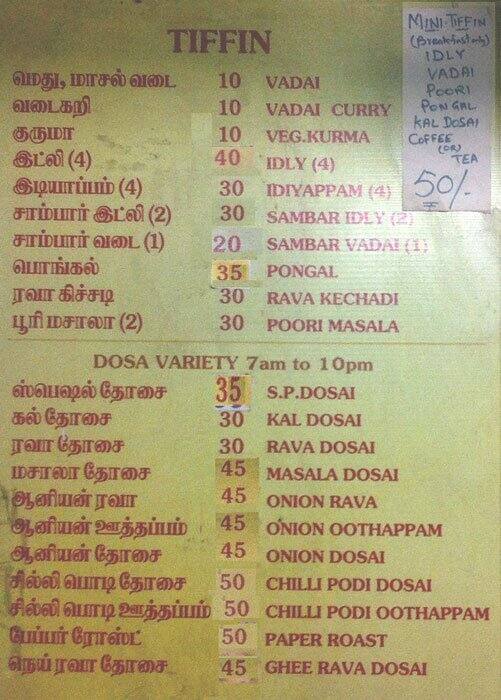 TIFFIN
மெது, மாசல் வடை 10 VADAI
வடைகறி 10 VADAI CURRY
குருமா 10 VEG.KURMA
இட்லி (4) 40 IDLY (4)
இடியாப்பம் (4) 30 IDIYAPPAM (4)
சாம்பார் இட்லி (2) 30 SAMBAR IDLY (2)
சாம்பார் வடை (1) 20 SAMBAR VADAI (1)
பொங்கல் 35 PONGAL
ரவா கிச்சடி 30 RAVA KECHADI
பூரி மசாலா (2) 30 POORI MASALA
DOSA VARIETY 7am to 10pm
ஸ்பெஷல் தோசை 35 S.P.DOSAI
கல் தோசை 30 KAL DOSAI
ரவா தோசை 30 RAVA DOSAI
மசாலா தோசை 45 MASALA DOSAI
ஆனியன் ரவா 45 ONION RAVA
ஆனியன் ஊத்தப்பம் 45 ONION OOTHAPPAM
ஆனியன் தோசை 45 ONION DOSAI
சில்லி பொடி தோசை 50 CHILLI PODI DOSAI
சில்லி பொடி ஊத்தப்பம் 50 CHILLI PODI OOTHAPPAM
பேப்பர் ரோஸ்ட் 50 PAPER ROAST
நெய் ரவா தோசை 45 GHEE RAVA DOSAI
MINI-TIFFIN
(Breakfast only)
IDLY
VADAI
POORI
PONGAL
KAL DOSAI
COFFEE
(OR)
TEA
50/-